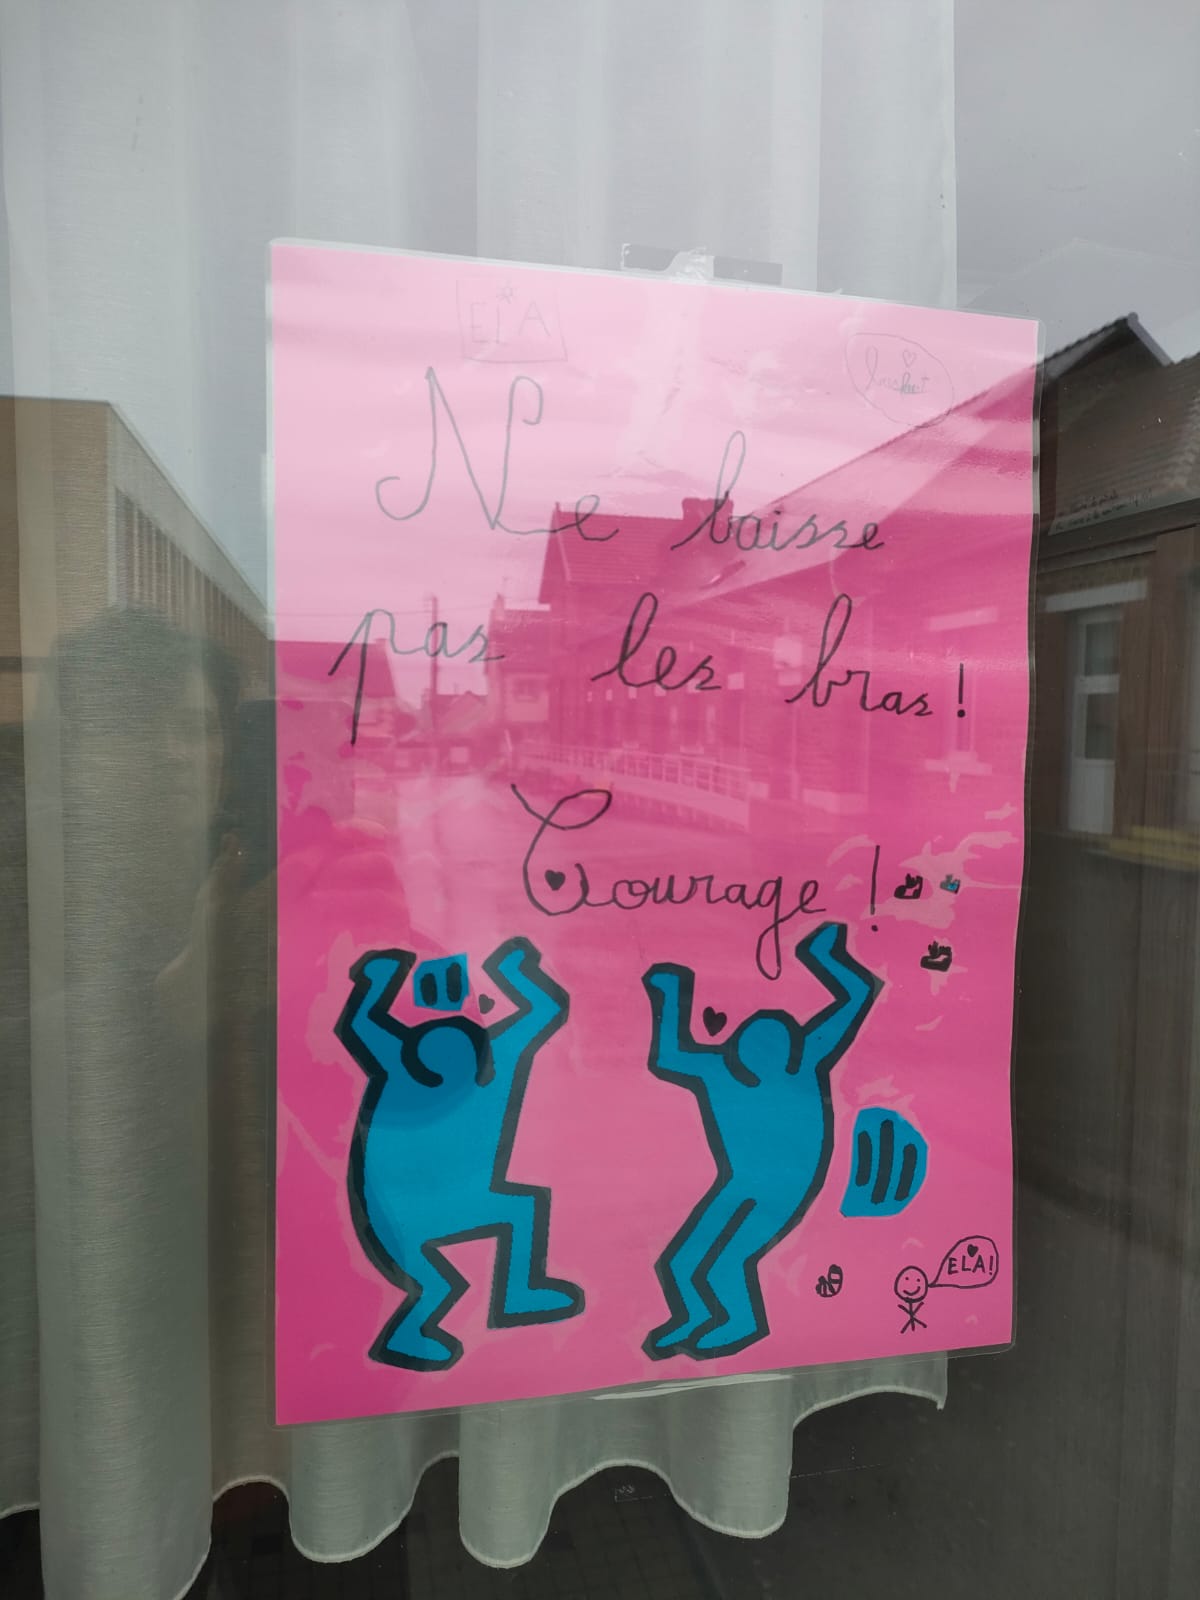 ELA
Ne baisse
pas les bras !
Courage !
ELA!